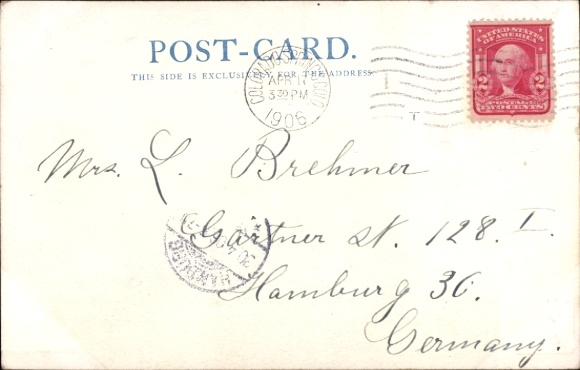 POST-CARD.
THIS SIDE IS EXCLUSIVELY FOR THE ADDRESS
COLORADO SPRINGS, COLO
APR 17
3 30 PM
1906
UNITED STATES
OF AMERICA
2 2
POSTAGE
TWO CENTS
Mrs. L. Brehmer
Gartner St. 128. I.
Hamburg 36.
Germany.
HAMBURG